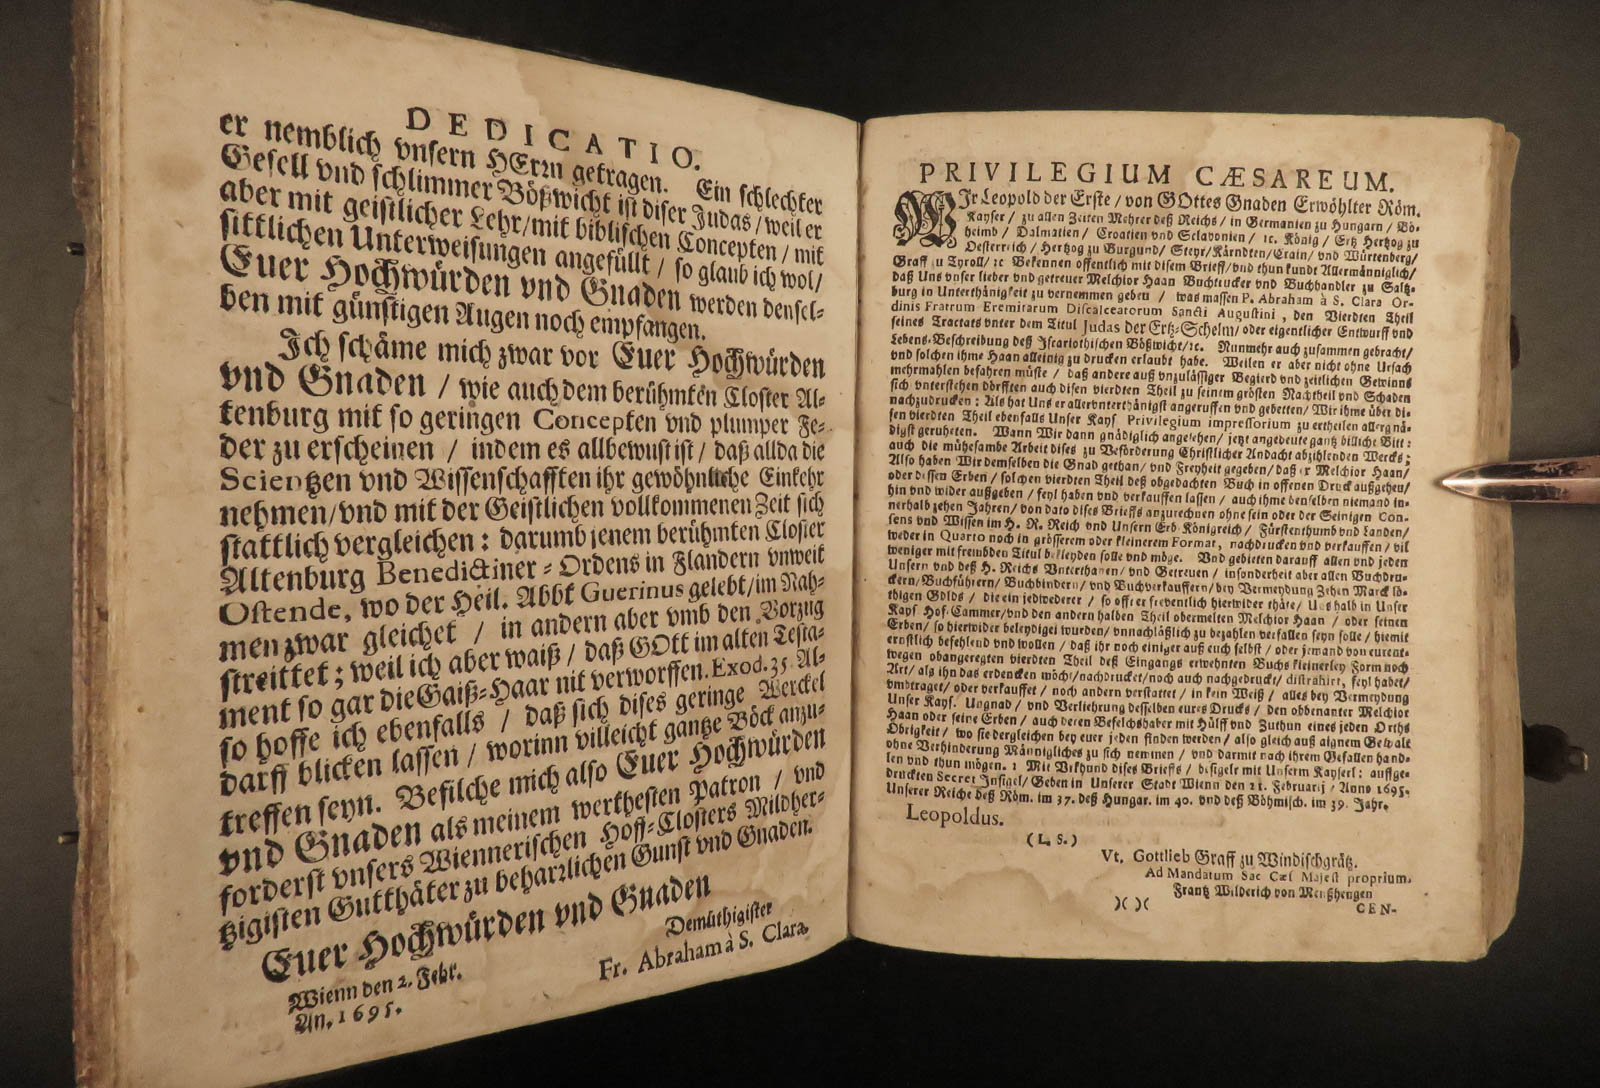 DEDICATIO.
er nemblich vnsern HErrn getragen. Ein schlechter
Gesell vnd schlimmer Bößwicht ist diser Judas / weil er
aber mit geistlicher Lehr / mit biblischen Concepten / mit
sittlichen Unterweisungen angefüllt / so glaub ich wol /
Euer Hochwürden vnd Gnaden werden densel-
ben mit günstigen Augen noch empfangen.
Ich schäme mich zwar vor Euer Hochwürden
vnd Gnaden / wie auch dem berühmten Closter Al-
tenburg mit so geringen Concepten vnd plumper Fe-
der zu erscheinen / indem es allbewust ist / daß allda die
Scientzen vnd Wissenschafften ihr gewöhnliche Einkehr
nehmen / vnd mit der Geistlichen vollkommenen Zeit sich
stattlich vergleichen : darumb jenem berühmten Closter
Altenburg Benedictiner-Ordens in Flandern vnweit
Ostende, wo der Heil. Abbt Guerinus gelebt / im Nah-
men zwar gleichet / in andern aber vmb den Vorzug
streittet ; weil ich aber waiß / daß GOtt im alten Testa-
ment so gar die Gaiß-Haar nit verworffen. Exod. 35. Al-
so hoffe ich ebenfalls / daß sich dises geringe Werckel
darff blicken lassen / worinn villeicht gantze Böck anzu-
treffen seyn. Befilche mich also Euer Hochwürden
vnd Gnaden als meinem werthesten Patron / vnd
forderst vnsers Wiennerischen Hoff-Closters Mildher-
tzigisten Gutthäter zu beharrlichen Gunst vnd Gnaden.
Euer Hochwürden vnd Gnaden
Wienn den 2. Febr.
An. 1695.
Demüthigister
Fr. Abraham à S. Clara.
PRIVILEGIUM CÆSAREUM.
WIr Leopold der Erste / von GOttes Gnaden Erwöhlter Röm.
Kayser / zu allen Zeiten Mehrer deß Reichs / in Germanien zu Hungarn / Bö-
heimb / Dalmatien / Croatien vnd Sclavonien / ꝛc. König / Ertz Hertzog zu
Oesterreich / Hertzog zu Burgund / Steyr / Kärndten / Crain / vnd Würtenberg /
Graff zu Tyroll / ꝛc Bekennen offentlich mit disem Brieff / vnd thun kundt Allermänniglich /
daß Uns vnser lieber und getreuer Melchior Haan Buchtrucker vnd Buchhandler zu Saltz-
burg in Unterthänigkeit zu vernemmen geben / was massen P. Abraham à S. Clara Or-
dinis Fratrum Eremitarum Discalceatorum Sancti Augustini, den Vierdten Theil
seines Tractats vnter dem Titul Judas der Ertz-Schelm / oder eigentlicher Entwurff vnd
Lebens-Beschreibung deß Iscariothischen Bößwicht / ꝛc. Nunmehr auch zusammen gebracht /
vnd solchen ihme Haan alleinig zu drucken erlaubt habe. Weilen er aber nicht ohne Ursach
mehrmahlen befahren müste / daß andere auß vnzulässiger Begierd vnd zeitlichen Gewinns
sich vnterstehen dörfften auch disen vierdten Theil zu seinem grösten Nachtheil vnd Schaden
nachzudrucken : Als hat Uns er allervnterthänigst angeruffen vnd gebetten / Wir ihme über di-
sen vierdten Theil ebenfalls Unser Kays. Privilegium impressorium zu ertheilen allergnä-
digst geruheten. Wann Wir dann gnädiglich angesehen / jetzt angedeute gantz billiche Bitt :
auch die mühesambe Arbeit dises zu Beförderung Christlicher Andacht abzihlenden Wercks ;
Also haben Wir demselben die Gnad gethan / vnd Freyheit gegeben / daß er Melchior Haan /
oder dessen Erben / solchen vierdten Theil deß obgedachten Buch in offenen Druck außgehen /
hin vnd wider außgeben / feyl haben vnd verkauffen lassen / auch ihme denselben niemand in-
nerhalb zehen Jahren / von dato dises Brieffs anzurechnen ohne sein oder der Seinigen Con-
sens vnd Wissen im H. R. Reich vnd Unsern Erb-Königreich / Fürstenthumb vnd Landen /
weder in Quarto noch in grösserem oder kleinerem Format, nachdrucken vnd verkauffen / vil
weniger mit frembden Titul bekleyden solle vnd möge. Vnd gebieten darauff allen vnd jeden
Unsern vnd deß H. Reichs Unterthanen / vnd Getreuen / insonderheit aber allen Buchdru-
ckern / Buchführern / Buchbindern / vnd Buchverkauffern / bey Vermeydung Zehen Marck lö-
thigen Golds / die ein jedwederer / so offt er freventlich hierwider thäte / Uns halb in Unser
Kays Hof-Cammer / vnd den andern halben Theil obermelten Melchior Haan / oder seinen
Erben / so hierwider beleydiget wurden / vnnachläßlich zu bezahlen verfallen seyn solle / hiemit
ernstlich befehlend vnd wollen / daß ihr noch einiger auß euch selbst / oder jemand von eurent-
wegen obangeregten vierdten Theil deß Eingangs erwehnten Buchs kleinerley Form noch
Art / als ihn das erdencken möcht / nachdrucket / noch auch nachgedruckt / distrahirt, feyl habet /
vmbtraget / oder verkauffet / noch andern verstattet / in kein Weiß / alles bey Vermeydung
Unser Kays. Ungnad / vnd Verliehrung desselben eures Drucks / den obbenanter Melchior
Haan oder seine Erben / auch deren Befelchshaber mit Hülff vnd Zuthun eines jeden Orths
Obrigkeit / wo sie dergleichen bey euer jeden finden werden / also gleich auß aignem Gewalt
ohne Verhinderung Männigliches zu sich nemmen / vnd darmit nach ihrem Gefallen hand-
len vnd thun mögen. : Mit Vrkhund dises Brieffs / besigelt mit Unserm Kayserl: auffge-
druckten Secret Insigel / Geben in Unserer Stadt Wienn den 21. Februarij / Anno 1695.
Unserer Reiche deß Röm. im 37. deß Hungar. im 40. vnd deß Böhmisch. im 39. Jahr.
Leopoldus.
(L. S.)
Vt. Gottlieb Graff zu Windischgrätz.
Ad Mandatum Sac Cæs Majest proprium.
Frantz Wilderich von Menßhengen
)( )(
CEN-